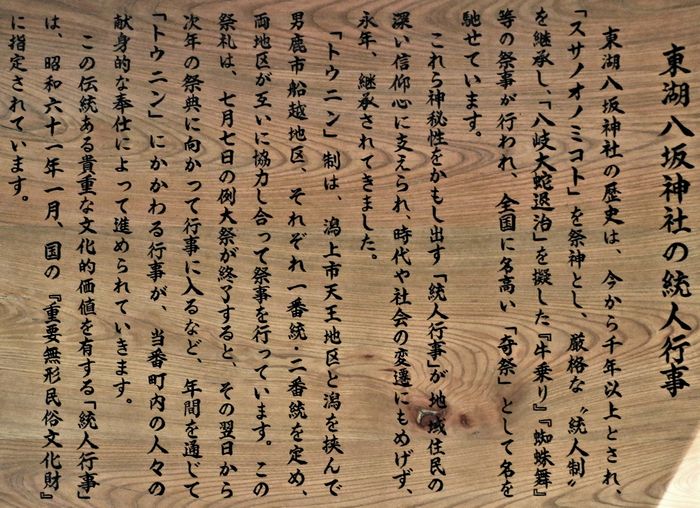 東湖八坂神社の統人行事
東湖八坂神社の歴史は、今から千年以上とされ、
「スサノオノミコト」を祭神とし、厳格な〝統人制〟
を継承し、「八岐大蛇退治」を擬した『牛乗り』『蜘蛛舞』
等の祭事が行われ、全国に名高い「奇祭」として名を
馳せています。
これら神秘性をかもし出す「統人行事」が地域住民の
深い信仰心に支えられ、時代や社会の変遷にもめげず、
永年、継承されてきました。
「トウニン」制は、潟上市天王地区と潟を挟んで
男鹿市船越地区、それぞれ一番統・二番統を定め、
両地区が互いに協力し合って祭事を行っています。この
祭礼は、七月七日の例大祭が終了すると、その翌日から
次年の祭典に向かって行事に入るなど、年間を通じて
「トウニン」にかかわる行事が、当番町内の人々の
献身的な奉仕によって進められていきます。
この伝統ある貴重な文化的価値を有する「統人行事」
は、昭和六十一年一月、国の『重要無形民俗文化財』
に指定されています。